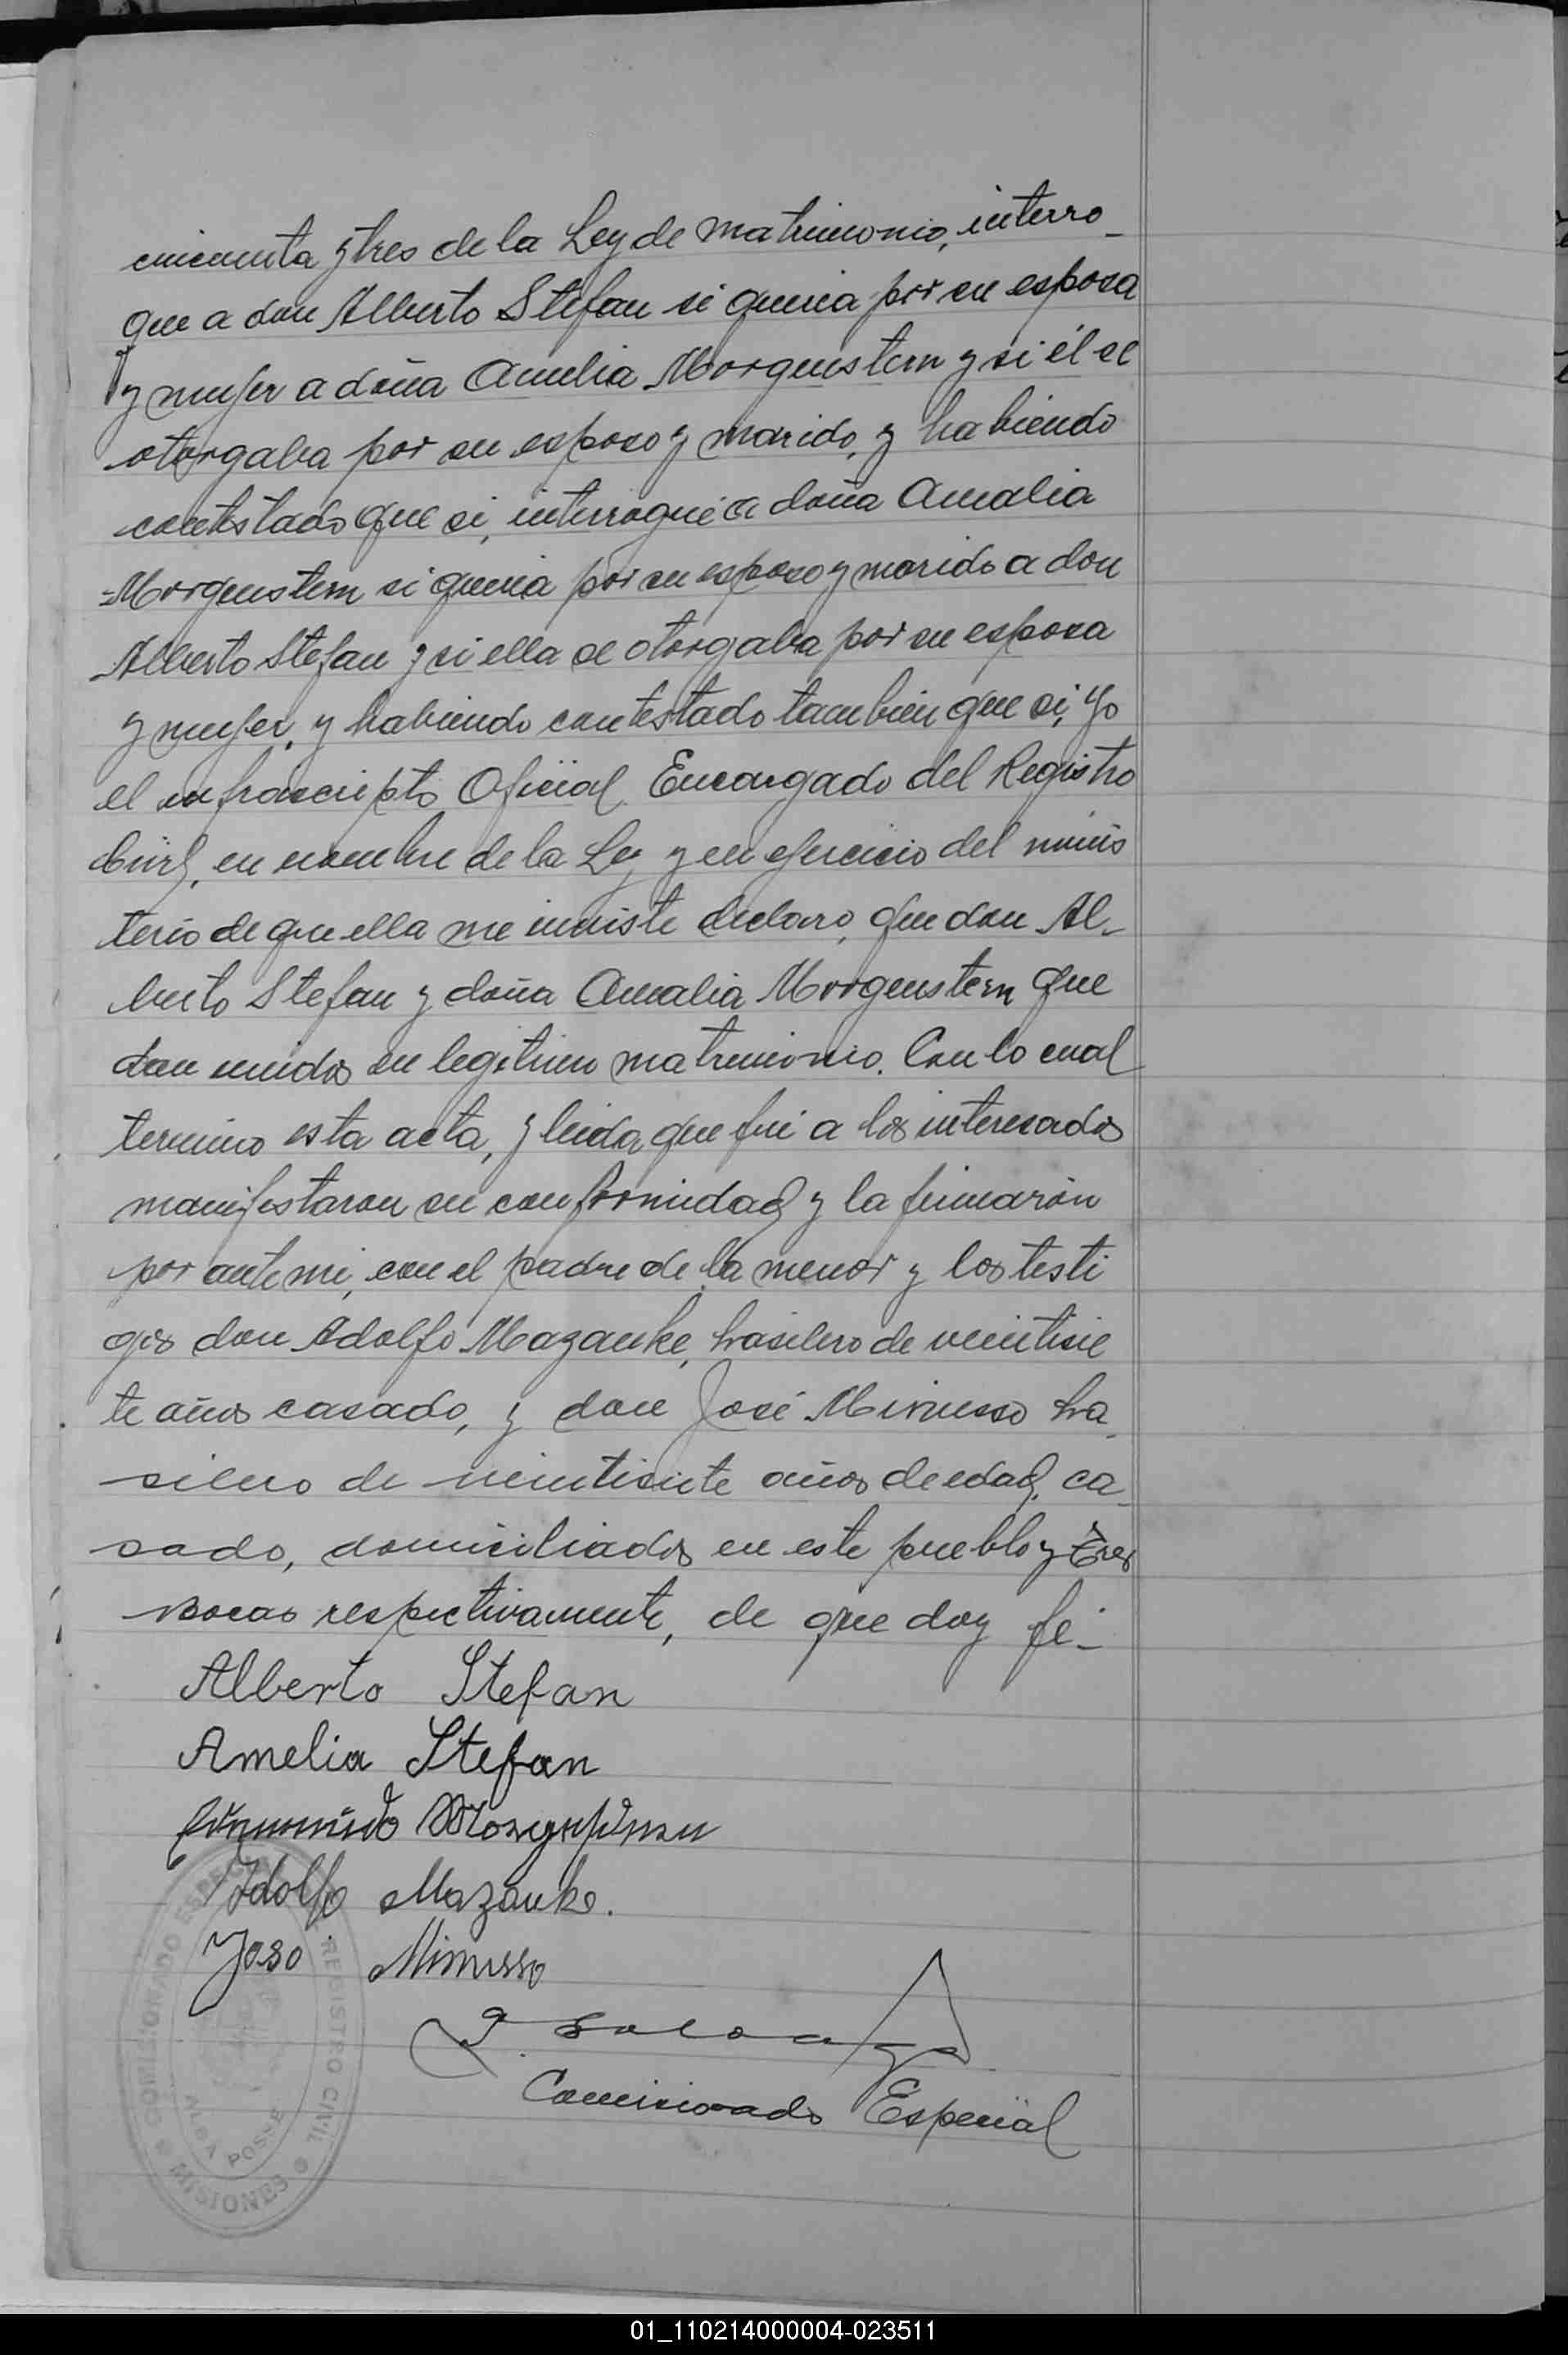 cincuenta y tres de la Ley de matrimonio, interro-
gue a don Alberto Stefan si queria por su esposa
y mujer a doña Amelia Morguenstern y si él se
otorgaba por su esposo y marido, y habiendo
contestado que si, interrogué a doña Amalia
Morguenstern si queria por su esposo y marido a don
Alberto Stefan y si ella se otorgaba por su esposa
y mujer, y habiendo contestado tambien que si, Yo
el infrascripto Oficial Encargado del Registro
Civil, en nombre de la Ley y en ejercicio del minis
terio de que ella me inviste declaro, que don Al-
berto Stefan y doña Amalia Morgenstern que
dan unidos en legitimo matrimonio. Con lo cual
termino esta acta, y leida que fué a los interesados
manifestaron su conformidad y la firmarón
por ante mi, con el padre de la menor y los testi
gos don Adolfo Mazanke, brasilero de veintisie
te años casado, y don José Minusso bra-
silero de veintisiete años de edad, ca-
sado, domiciliados en este pueblo y Tres
Bocas respectivamente, de que doy fé-
Alberto Stefan
Amelia Stefan
Adolfo Mazanke.
Joso Minusso
Comisionado Especial
COMISIONADO ESPECIAL REGISTRO CIVIL
ALBA POSSE
MISIONES
01_110214000004-023511